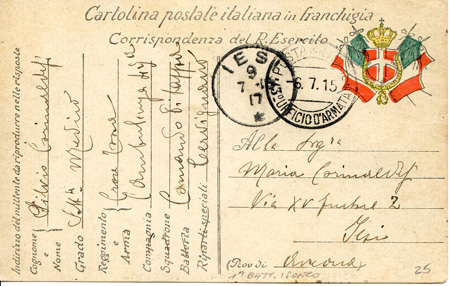 Cartolina postale italiana in franchigia
Corrispondenza del R. Esercito
Indirizzo del mittente da riprodurre nelle risposte
Cognome e Nome
Grado
Reggimento e Arma
Croce Rossa
Compagnia
Ambulanza
Squadrone
Batteria
Comando di Tappa
Riparti speciali
Cervignano
IESI
9
7-
17
POSTA
6.7.15
UFFICIO D'ARMATA
Alla Sig.ra
Maria
Via XV Settembre 2
Jesi
(Prov. di Ancona)
1ª BATT. ISONZO
25